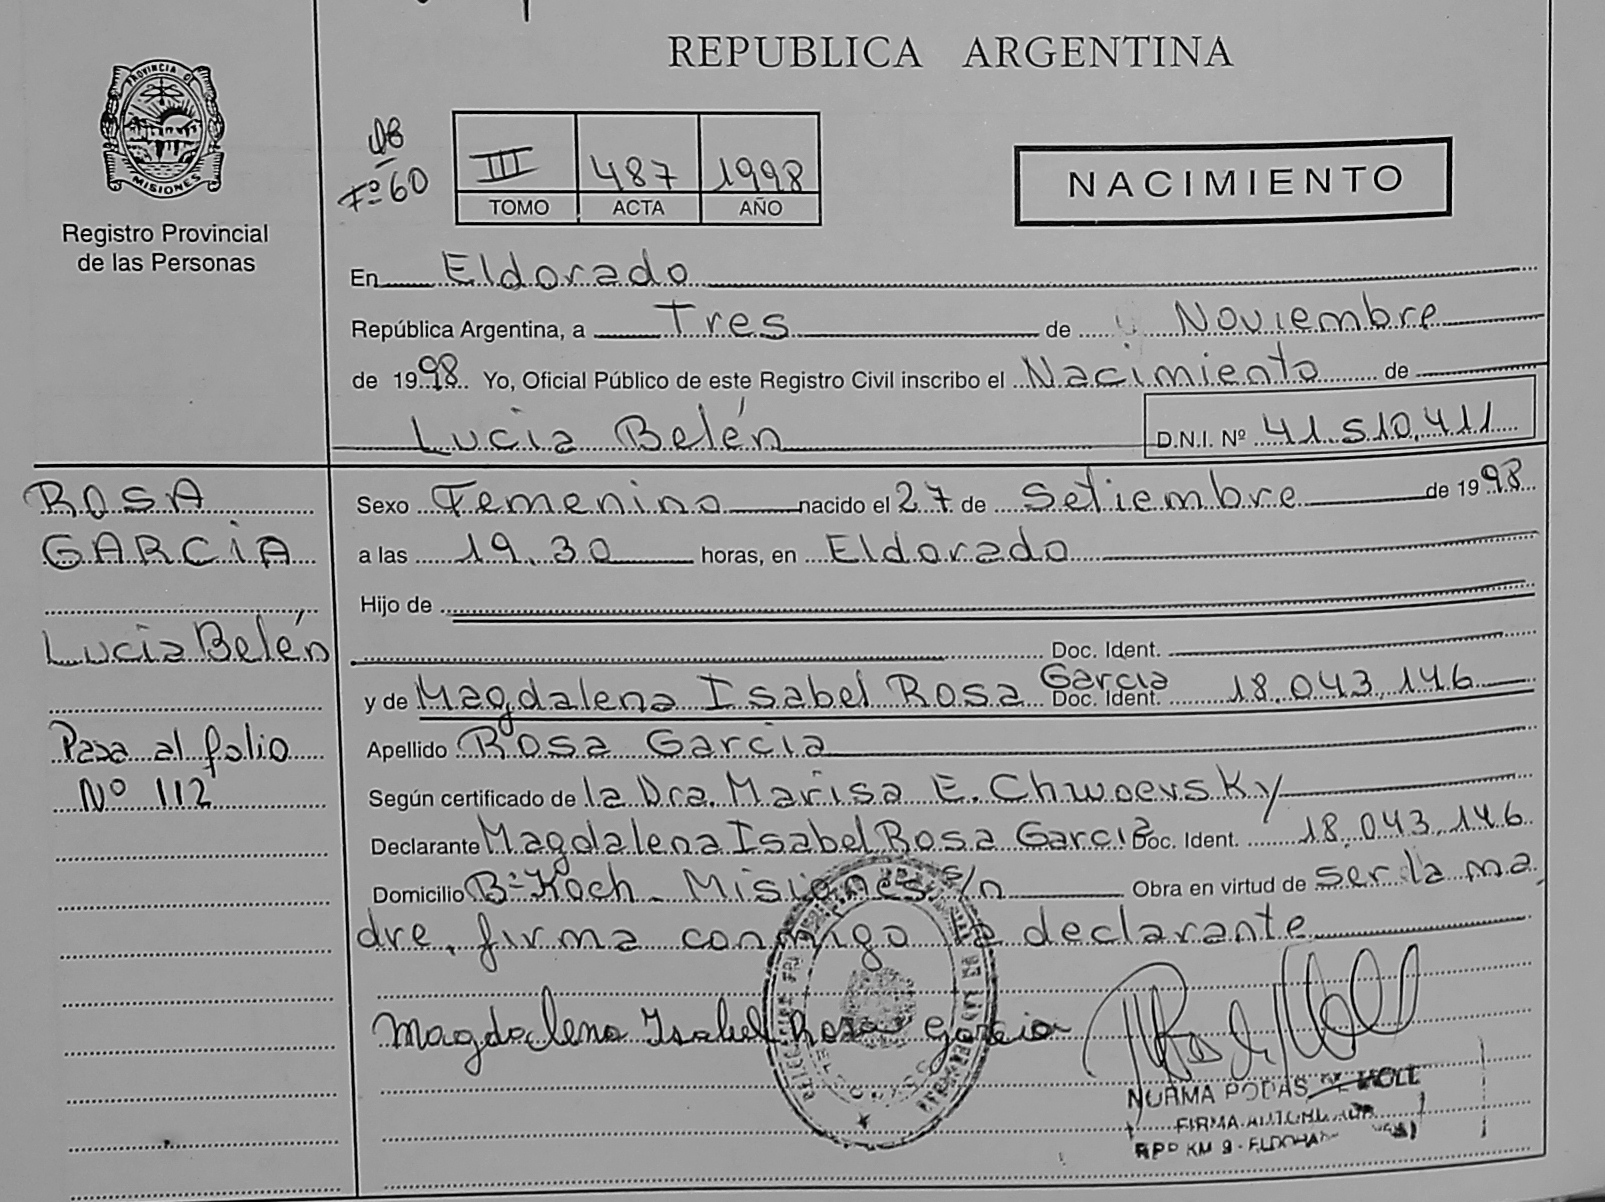 REPUBLICA ARGENTINA
PROVINCIA DE
MISIONES
Registro Provincial
de las Personas
Fº 60
III 487 1998
TOMO ACTA AÑO
NACIMIENTO
En Eldorado
República Argentina, a Tres de Noviembre
de 1998 Yo, Oficial Público de este Registro Civil inscribo el Nacimiento de
Lucia Belén D.N.I. Nº 41.510.411
ROSA
GARCIA
Lucia Belén
Pasa al folio
Nº 112
Sexo Femenino nacido el 27 de Setiembre de 1998
a las 19.30 horas, en Eldorado
Hijo de
Doc. Ident.
y de Magdalena Isabel Rosa Garcia Doc. Ident. 18.043.146
Apellido Rosa Garcia
Según certificado de la Dra. Marisa E. Chwoevsky
Declarante Magdalena Isabel Rosa Garcia Doc. Ident. 18.043.146
Domicilio Bº Koch - Misiones s/n Obra en virtud de ser la ma
dre, firma conmigo la declarante
Magdalena Isabel Rosa Garcia
NORMA POSAS DE MOLL
FIRMA
RPP KM 9 - ELDORADO